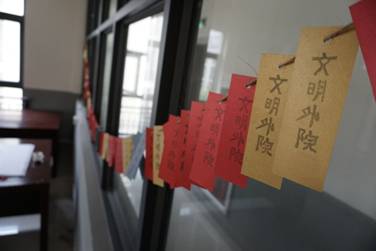 文明外院
文明外院
文明外院
文明外院